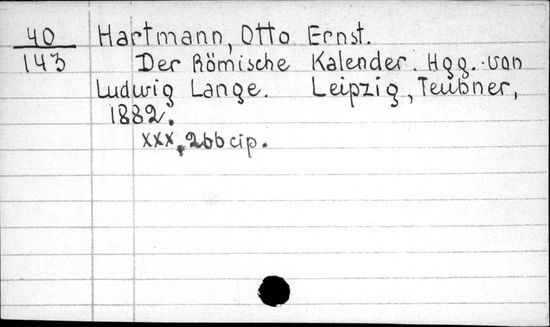 40 Hartmann, Otto Ernst.
143 Der Römische Kalender. Hgg. von
Ludwig Lange. Leipzig, Teubner,
1882.
xxx, 266 cip.